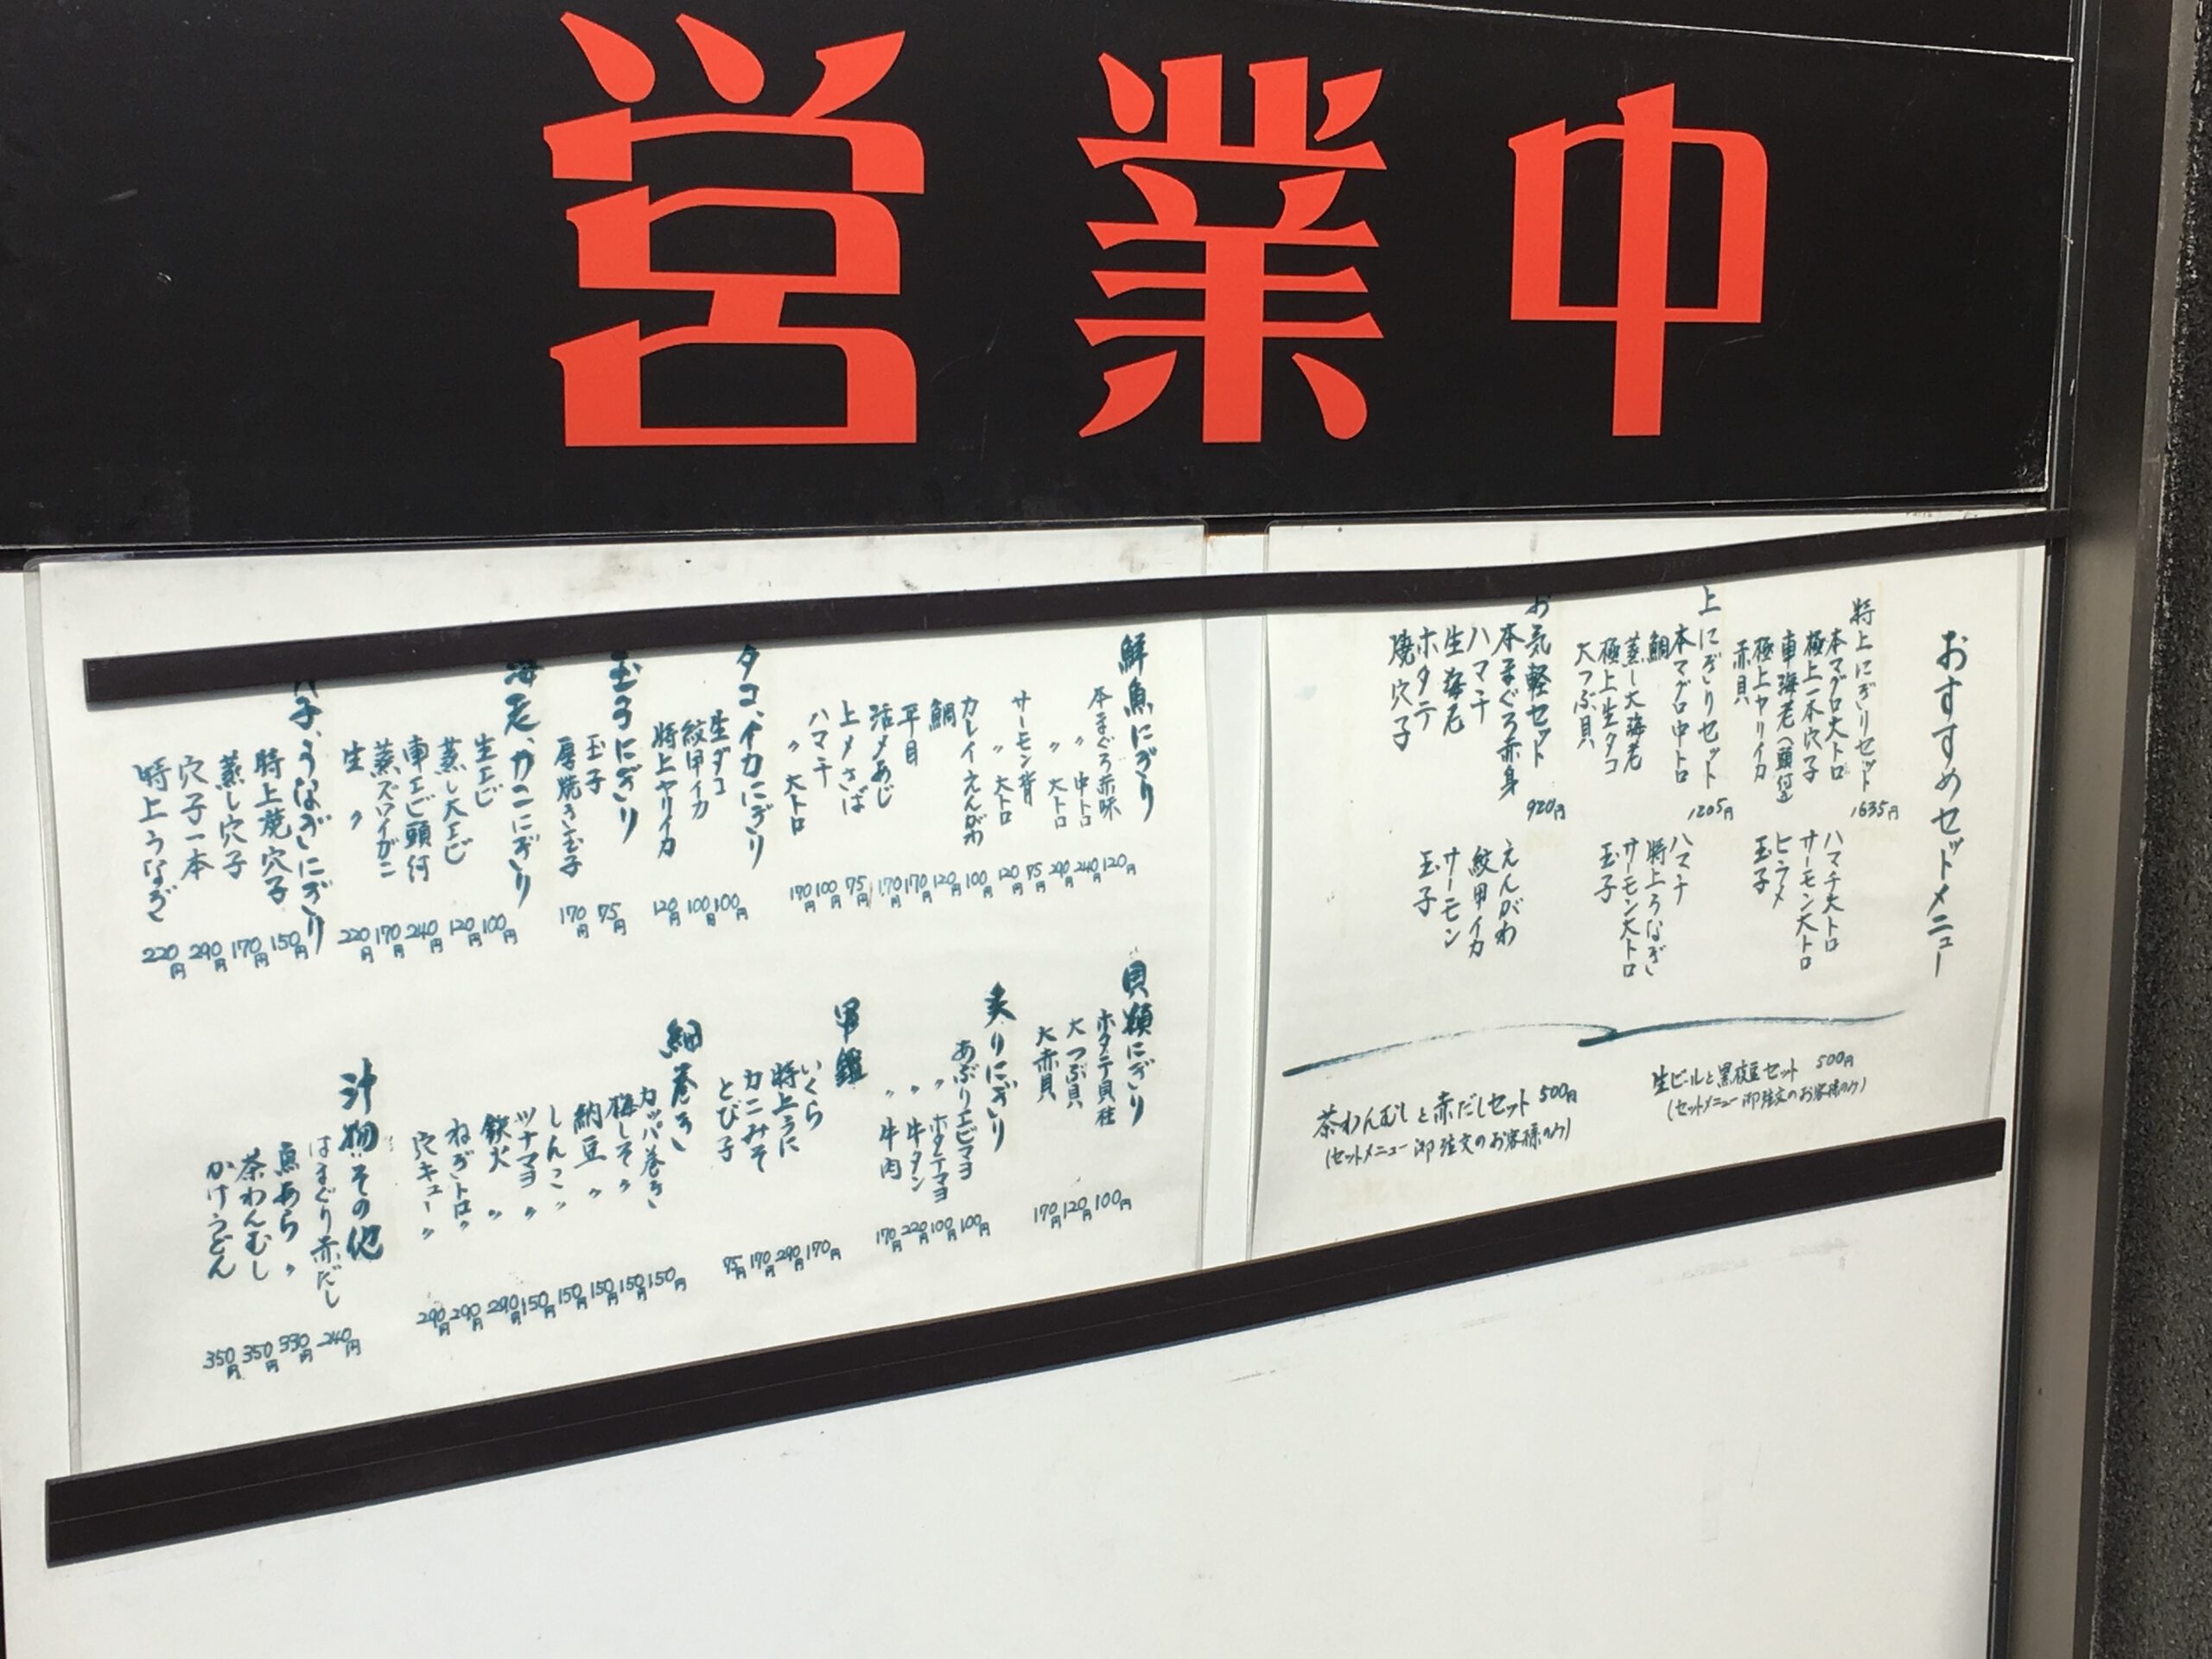 営業中
おすすめセットメニュー
特上にぎりセット 1635円
本マグロ大トロ
極上一本穴子
車海老(頭付)
極上ヤリイカ
赤貝
ハマチ大トロ
サーモン大トロ
ヒラメ
玉子
上にぎりセット 1205円
本マグロ中トロ
鯛
蒸し大海老
極上生タコ
大つぶ貝
ハマチ
特上うなぎ
サーモン大トロ
玉子
お気軽セット 920円
本まぐろ赤身
ハマチ
生海老
ホタテ
焼穴子
えんがわ
紋甲イカ
サーモン
玉子
生ビールと黒枝豆セット 500円
(セットメニュー御注文のお客様のみ)
茶わんむしと赤だしセット 500円
(セットメニュー御注文のお客様のみ)
鮮魚にぎり
本まぐろ赤味 120円
〃 中トロ 240円
〃 大トロ 290円
サーモン背 75円
〃 大トロ 120円
カレイえんがわ 100円
鯛 120円
平目 170円
活〆あじ 170円
上〆さば 75円
ハマチ 100円
〃 大トロ 170円
タコ、イカにぎり
生ダコ 100円
紋甲イカ 100円
特上ヤリイカ 120円
玉子にぎり
玉子 75円
厚焼き玉子 170円
海老、カニにぎり
生エビ 100円
蒸し大エビ 120円
車エビ頭付 240円
蒸ズワイガニ 170円
生 〃 220円
穴子、うなぎにぎり
特上焼穴子 150円
蒸し穴子 170円
穴子一本 290円
特上うなぎ 220円
貝類にぎり
ホタテ貝柱 100円
大つぶ貝 120円
大赤貝 170円
炙りにぎり
あぶりエビマヨ 100円
〃 ホタテマヨ 100円
〃 牛タン 220円
〃 牛肉 170円
軍艦
いくら 170円
特上うに 290円
カニみそ 170円
とび子 75円
細巻き
カッパ巻き 150円
梅しそ〃 150円
納豆 〃 150円
しんこ〃 150円
ツナマヨ〃 150円
鉄火 〃 290円
ねぎトロ〃 290円
穴キュー〃 290円
汁物、その他
はまぐり赤だし 240円
魚あら〃 330円
茶わんむし 350円
かけうどん 350円